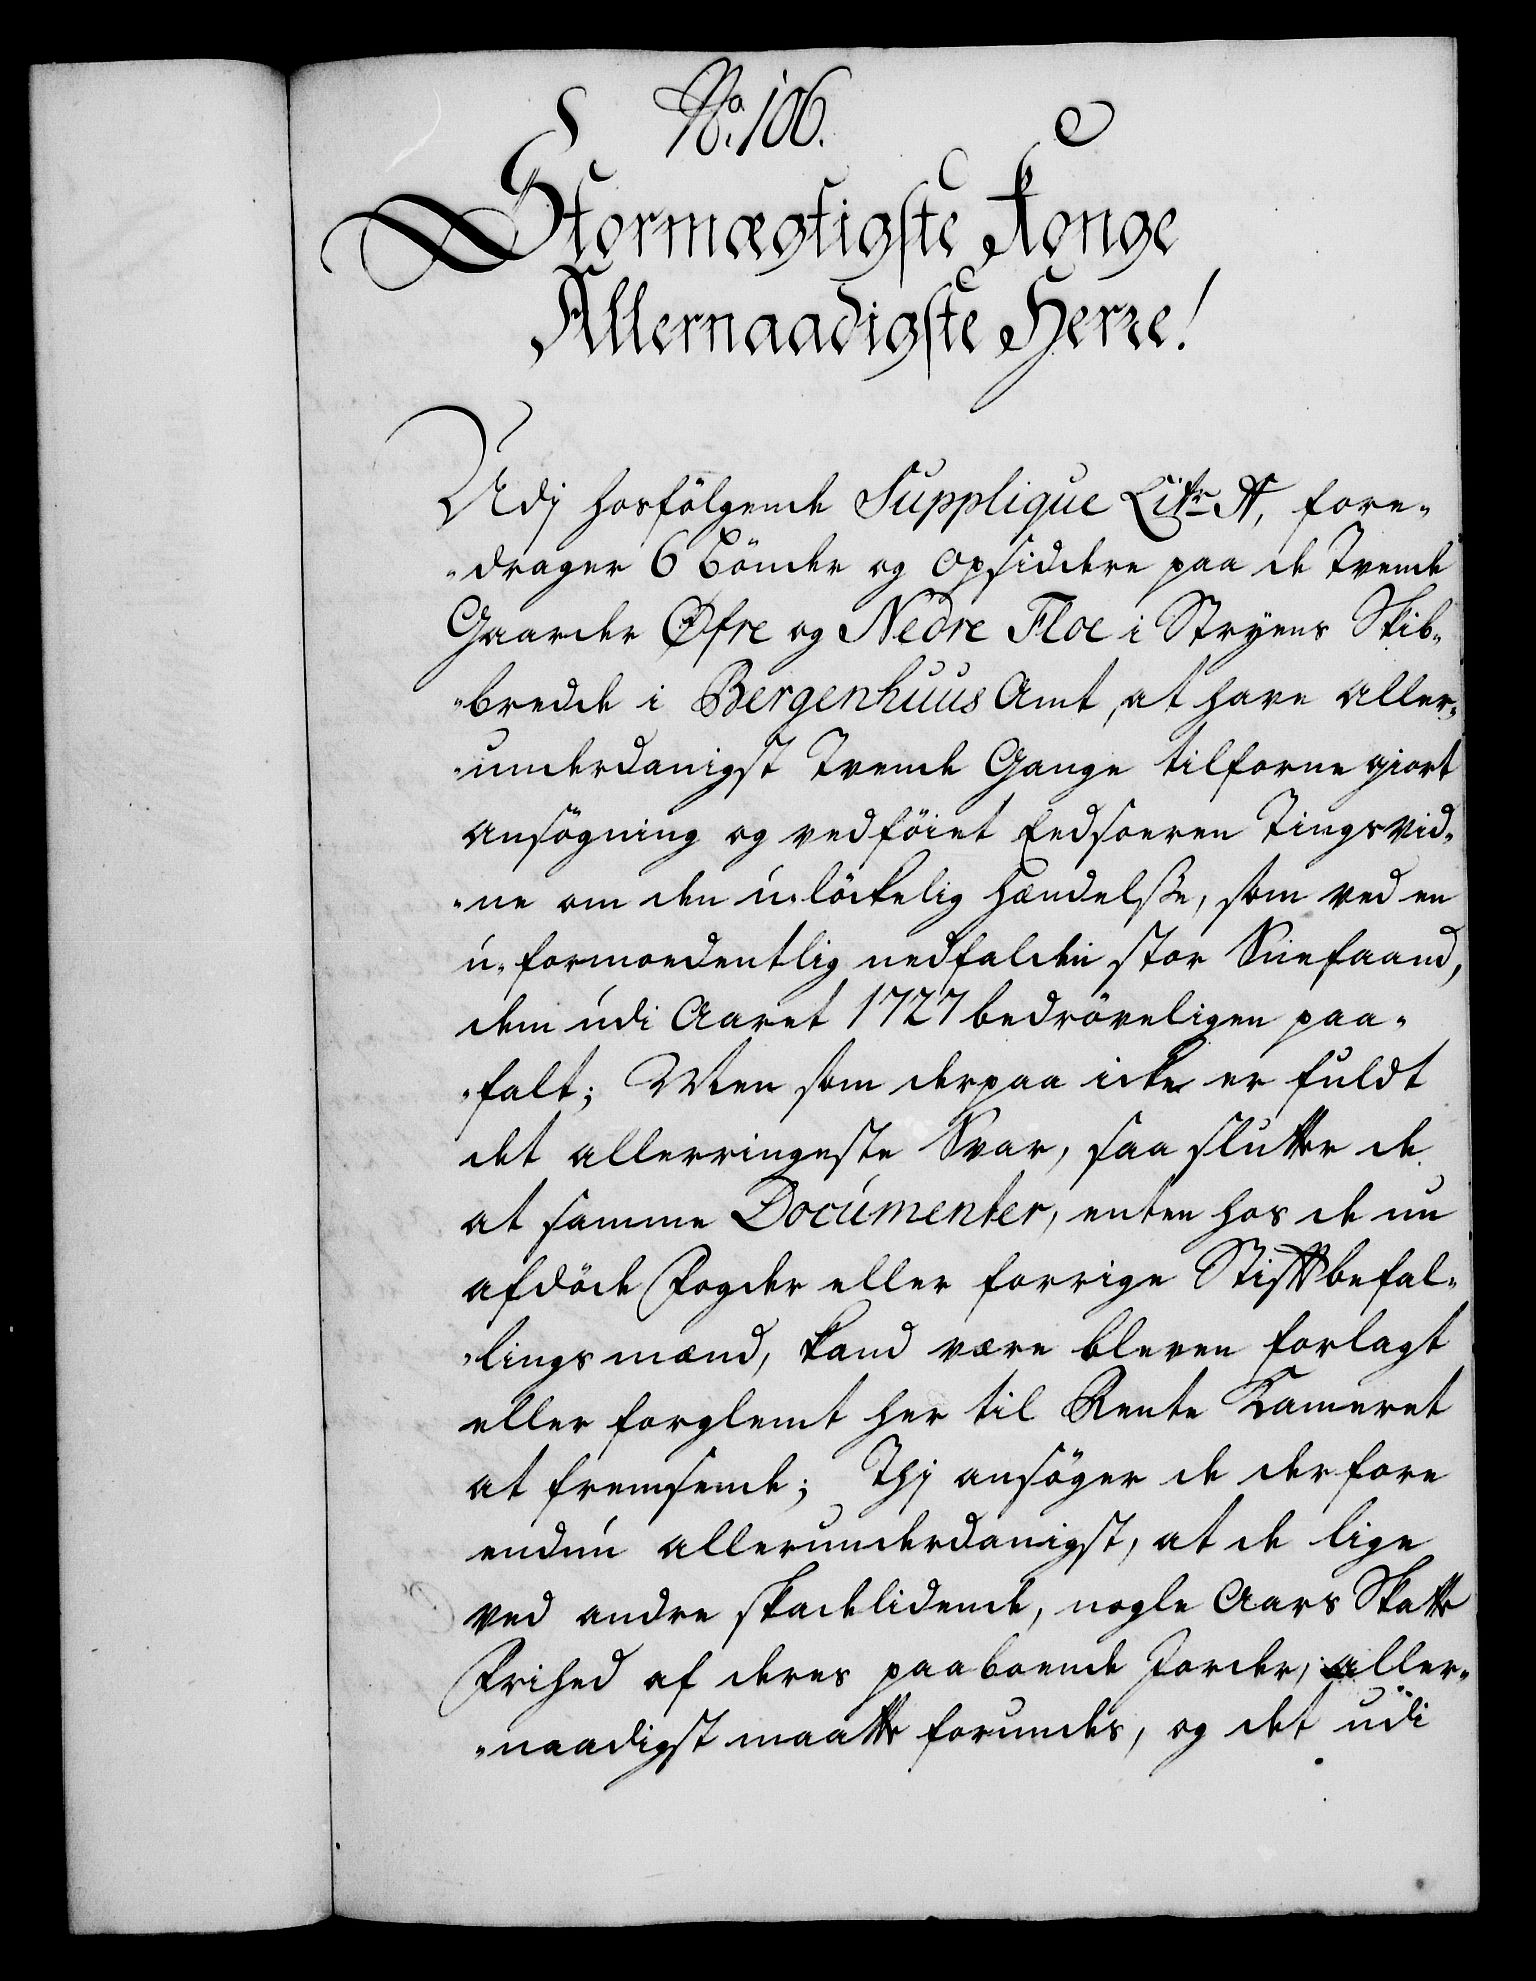 No. 106.
Stormægtigste Konge
Allernaadigste Herre!
Udj hosfölgende Supplique Litr. A, fore-
-drager 6 Bönder og Opsiddere paa de Tvende
Gaarder Øfre og Nedre Floe i Stryens Skib-
-bredde i Bergenhuus Amt, at have aller-
-underdanigst Tvende Gange tilforne giort
ansögning og vedföiet Eedsoeren Tingsvid-
-ne om den u-löckelig Hændelsse, som ved en
u-formoedentlig nedfalden stor Sneefaand,
dem udi Aaret 1727 bedröveligen paa-
-falt; Men som derpaa icke er fuldt
det allerringeste Svar, saa slutter de
at samme Documenter, enten hos de nu
afdöde Fogder eller forrige Stiftbefal-
-lingsmænd, kand være bleven forlagt
eller forglemt her til Rente Kameret
at fremsende; Thj ansöger de derfore
endnu allerunderdanigst, at de lige
ved andre skadelidende, nogle Aars Skatte
Frihed af deres paaboende Jorder, aller-
-naadigst maatte forundes, og det udi